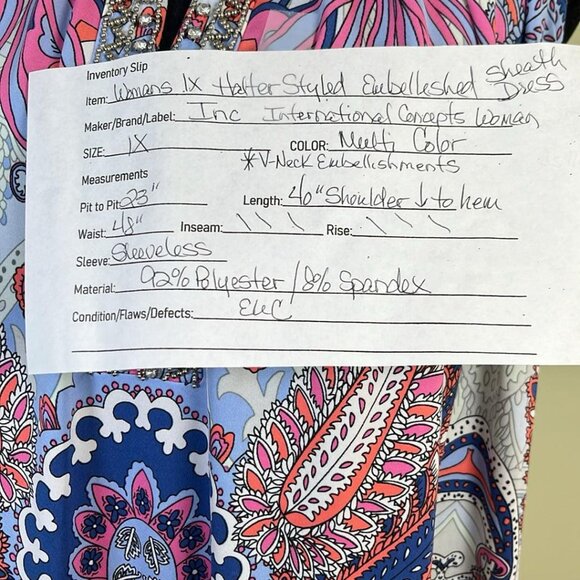 Inventory Slip
Item: Womans 1X Halter Styled Embelleshed Sheath Dress
Maker/Brand/Label: Inc International Concepts Woman
SIZE: 1X COLOR: Multi Color
*V-Neck Embellishments
Measurements
Pit to Pit: 23" Length: 40" Shoulder ↓ to hem
Waist: 48" Inseam: \ \ \ Rise: \ \ \
Sleeve: Sleeveless
Material: 92% Polyester / 8% Spandex
Condition/Flaws/Defects: EUC